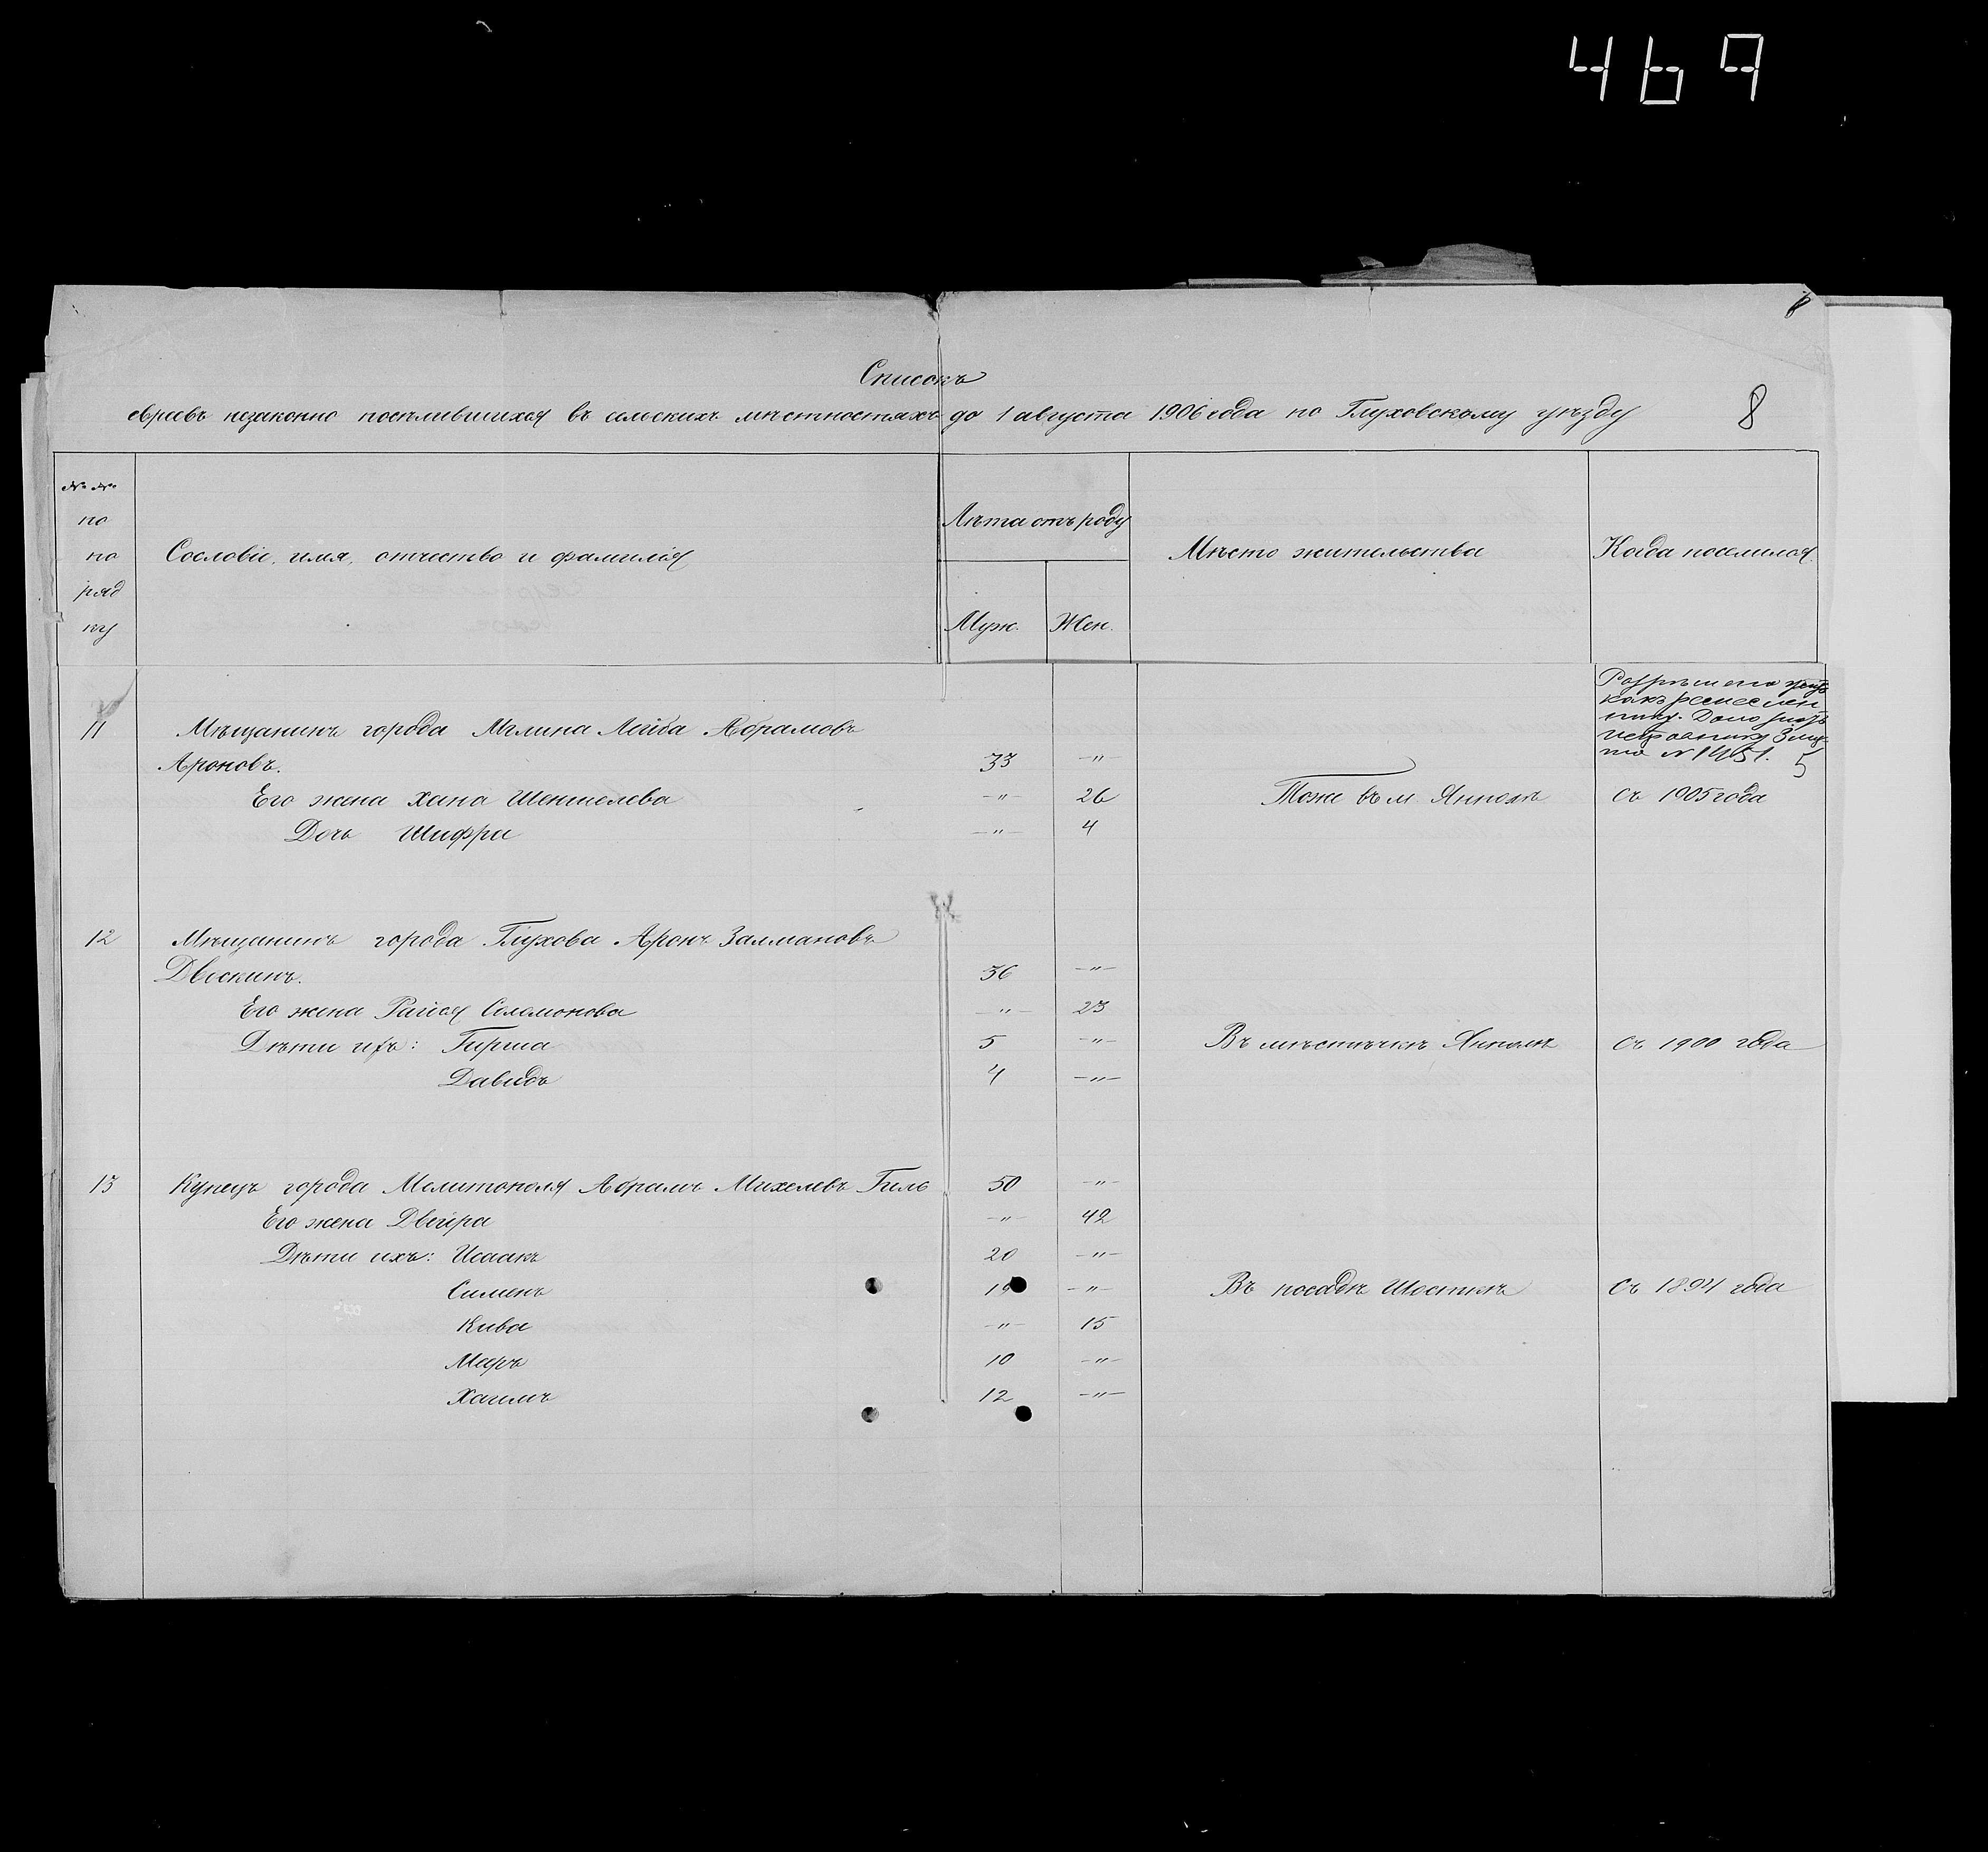 469
Списокъ
евреевъ незаконно поселившихся въ сельскихъ мѣстностяхъ до 1 августа 1906 года по Глуховскому уѣзду
8
№ №
по
по
ряд
ку
Сословіе, имя, отчество и фамилія
Лѣта отъ роду
Муж.
Жен.
Мѣсто жительства
Когда поселился
Разрѣшено
какъ ремеслен
нику. Дано знать
исправнику
№ 1451.
5
11 Мѣщанинъ города Мглина Лейба Абрамовъ
Ароновъ. 33 -"-
Его жена Хана Шентелева -"- 26 Тоже въ м. Янполѣ съ 1905 года
Дочь Шифра -"- 4
12 Мѣщанинъ города Глухова Аронъ Залмановъ
Двескинъ. 36 -"-
Его жена Раися Соломонова -"- 23
Дѣти ихъ: Гирша 5 -"- Въ мѣстечкѣ Янполѣ съ 1900 года
Давидъ 4 -"-
13 Купецъ города Мелитополя Абрамъ Михелевъ Гиль 50 -"-
Его жена Двейра -"- 42
Дѣти ихъ: Исаакъ 20 -"-
Сименъ 19 -"- Въ посадѣ Шосткѣ съ 1894 года
Кива -"- 15
Меръ 10 -"-
Хаимъ 12 -"-